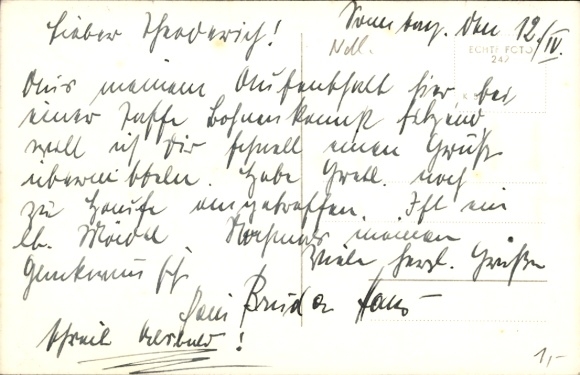 Sonntag, den 12/IV.
Lieber Theoderich!
ECHTE FOTO
247
Aus meinem Aufenthalt hier, bei
einer Taffe Bohnenkaffee sitzend,
will ich Dir schnell einen Gruß
übermitteln. Habe Gretl. noch
zu Hause angetroffen. Ist ein
lb. Mädel. Nochmals meinen
Glückwunsch
Viele herzl. Grüße
Dein Bruder Hans
Schreib !
1,-